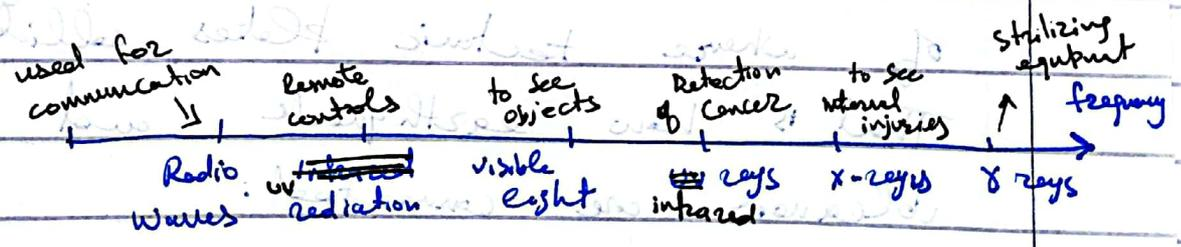 used for
communication
Remote
controls
to see
objects
Detection
of Cancer
to see
internal
injuries
strilizing
equpmnt
frequency
Radio
Waves
UV
radiation
visible
light
rays
infrared.
x-rays
γ rays